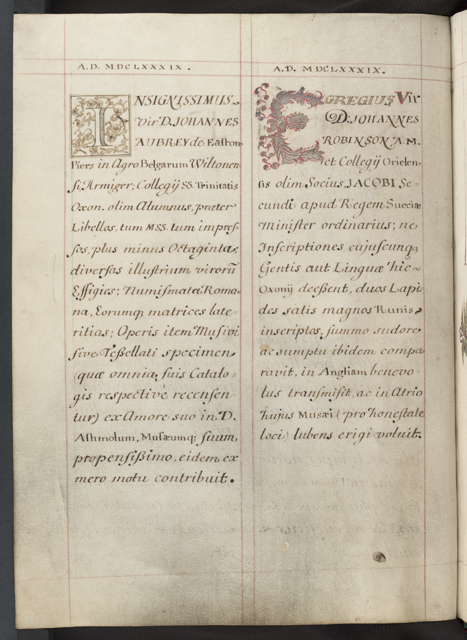 A.D. MDCLXXXIX.
INSIGNISSIMUS
Vir D. JOHANNES
AUBREY de Easton
Piers in Agro Belgarum Wiltonen-
si, Armiger, Collegij SS. Trinitatis
Oxon. olim Alumnus, præter
Libellos, tum MSS. tum impres-
sos, plus minus Octaginta;
diversas illustrium virorū
Effigies; Numismata Roma-
na, Eorumq; matrices late-
ritias; Operis item Musivi
sive Teßellati specimen,
quæ omnia, suis Catalo-
gis respective recensen-
tur) ex Amore suo in D.
Ashmolum, Musæumq; suum,
propensißimo, eidem, ex
mero motu contribuit.
A.D. MDCLXXXIX.
EGREGIUS Vir
D. JOHANNES
ROBINSON A.M.
et Collegij Orielen-
sis olim Socius, JACOBI Se-
cundi apud Regem Sueciæ
Minister ordinarius; ne
Inscriptiones cujuscunq;
Gentis aut Linguæ hic
Oxonij deeßent, duos Lapi-
des satis magnos Runis
inscriptos, summo sudore
ac sumptu ibidem compa-
ravit, in Angliam benevo-
lus transmisit, ac in Atrio
hujus Musæi (pro honestate
loci) lubens erigi voluit.